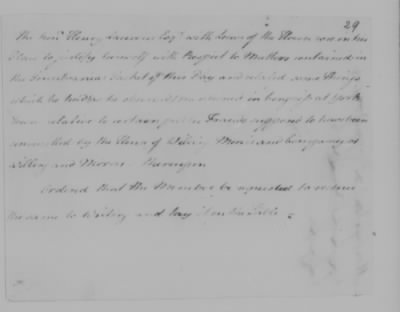 29
The honl. Henry Laurens Esqr. with Leave of the House rose in his
Place to justify himself with Respect to Matters contained in
the Packet of this Day and related some Things
which he had observed in Congress at York
Town relative to certain Frauds supposed to have been
committed by the House of Willing Morris and Company
Willing and Morris
Ordered that the Member be requested to reduce
the same to Writing and lay it on the Table.